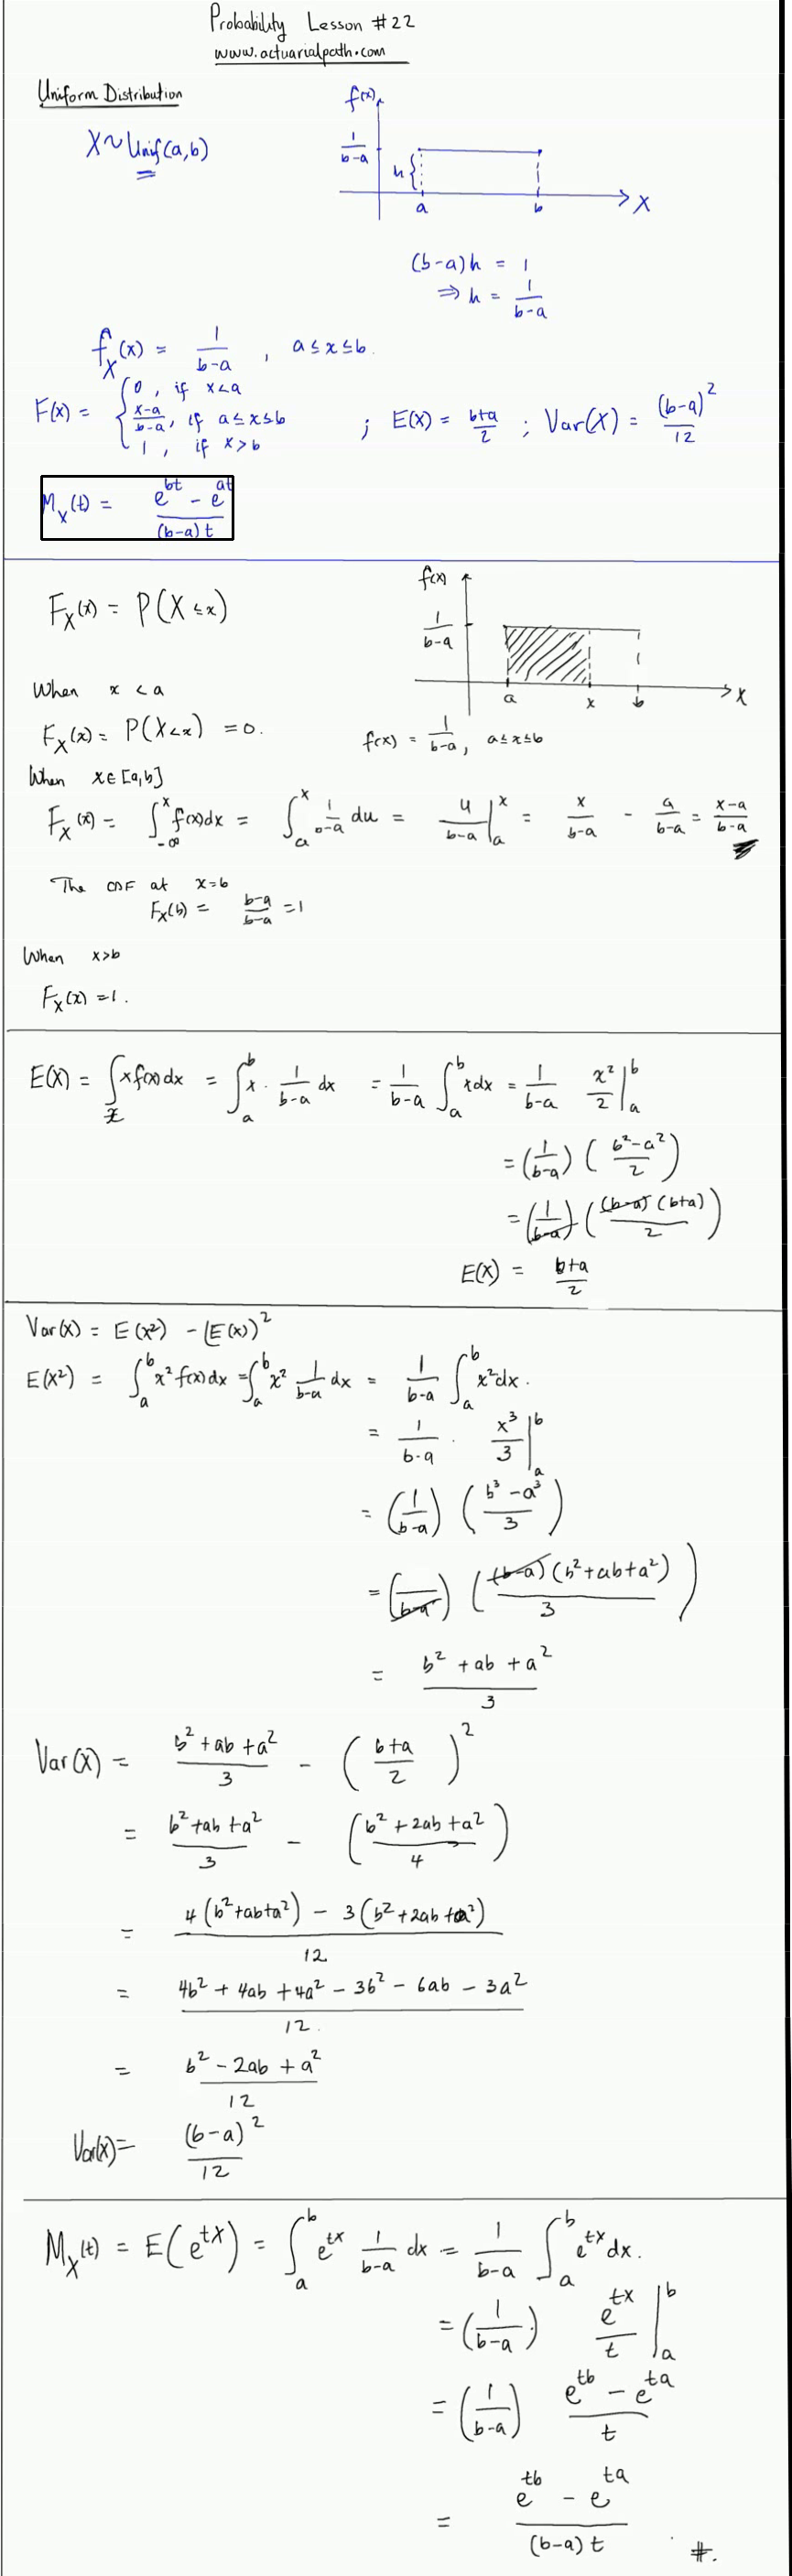 Probability Lesson #22
www.actuarialpath.com
Uniform Distribution
X ~ Unif(a,b)
f(x)
1/(b-a)
h {
a b X
(b-a)h = 1
⇒ h = 1/(b-a)
f_X(x) = 1/(b-a) , a ≤ x ≤ b.
F(x) = { 0, if x<a
(x-a)/(b-a), if a ≤ x ≤ b ; E(X) = (b+a)/2 ; Var(X) = (b-a)^2/12
1, if x>b
M_X(t) = (e^{bt} - e^{at})/((b-a)t)
F_X(x) = P(X ≤ x)
f(x)
1/(b-a)
a x b X
When x < a
F_X(x) = P(X<x) = 0.
f(x) = 1/(b-a), a ≤ x ≤ b
When x ∈ [a,b]
F_X(x) = ∫_{-∞}^{x} f(x)dx = ∫_a^x 1/(b-a) du = u/(b-a) |_a^x = x/(b-a) - a/(b-a) = (x-a)/(b-a)
The CDF at x=b
F_X(b) = (b-a)/(b-a) = 1
When x>b
F_X(x) = 1.
E(X) = ∫_x x f(x) dx = ∫_a^b x · 1/(b-a) dx = 1/(b-a) ∫_a^b x dx = 1/(b-a) x^2/2 |_a^b
= (1/(b-a)) ((b^2-a^2)/2)
= (1/(b-a)) ((b-a)(b+a)/2)
E(X) = (b+a)/2
Var(X) = E(X^2) - (E(X))^2
E(X^2) = ∫_a^b x^2 f(x) dx = ∫_a^b x^2 1/(b-a) dx = 1/(b-a) ∫_a^b x^2 dx.
= 1/(b-a) · x^3/3 |_a^b
= (1/(b-a)) ((b^3 - a^3)/3)
= (1/(b-a)) ((b-a)(b^2+ab+a^2)/3)
= (b^2 + ab + a^2)/3
Var(X) = (b^2+ab+a^2)/3 - ((b+a)/2)^2
= (b^2+ab+a^2)/3 - ((b^2+2ab+a^2)/4)
= (4(b^2+ab+a^2) - 3(b^2+2ab+a^2))/12
= (4b^2 + 4ab + 4a^2 - 3b^2 - 6ab - 3a^2)/12.
= (b^2 - 2ab + a^2)/12
Var(x) = (b-a)^2/12
M_X(t) = E(e^{tX}) = ∫_a^b e^{tx} 1/(b-a) dx = 1/(b-a) ∫_a^b e^{tx} dx.
= (1/(b-a)) e^{tx}/t |_a^b
= (1/(b-a)) (e^{tb} - e^{ta})/t
= (e^{tb} - e^{ta})/((b-a)t) #.